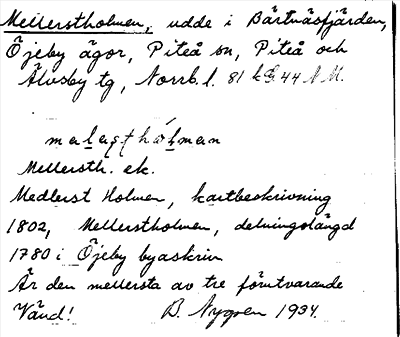 Mellerstholmen, udde i Bärtnäsfjärden,
Öjeby ägor, Piteå sn, Piteå och
Älvsby tg, Norrb. l. 81 44 N.M.
Mellersth. ek.
Medlerst Holmen, kartbeskrivning
1802, Mellerstholmen, delningslängd
1780 i Öjeby byaskrin
Är den mellersta av tre förutvarande
Vänd! B. Nygren 1934.